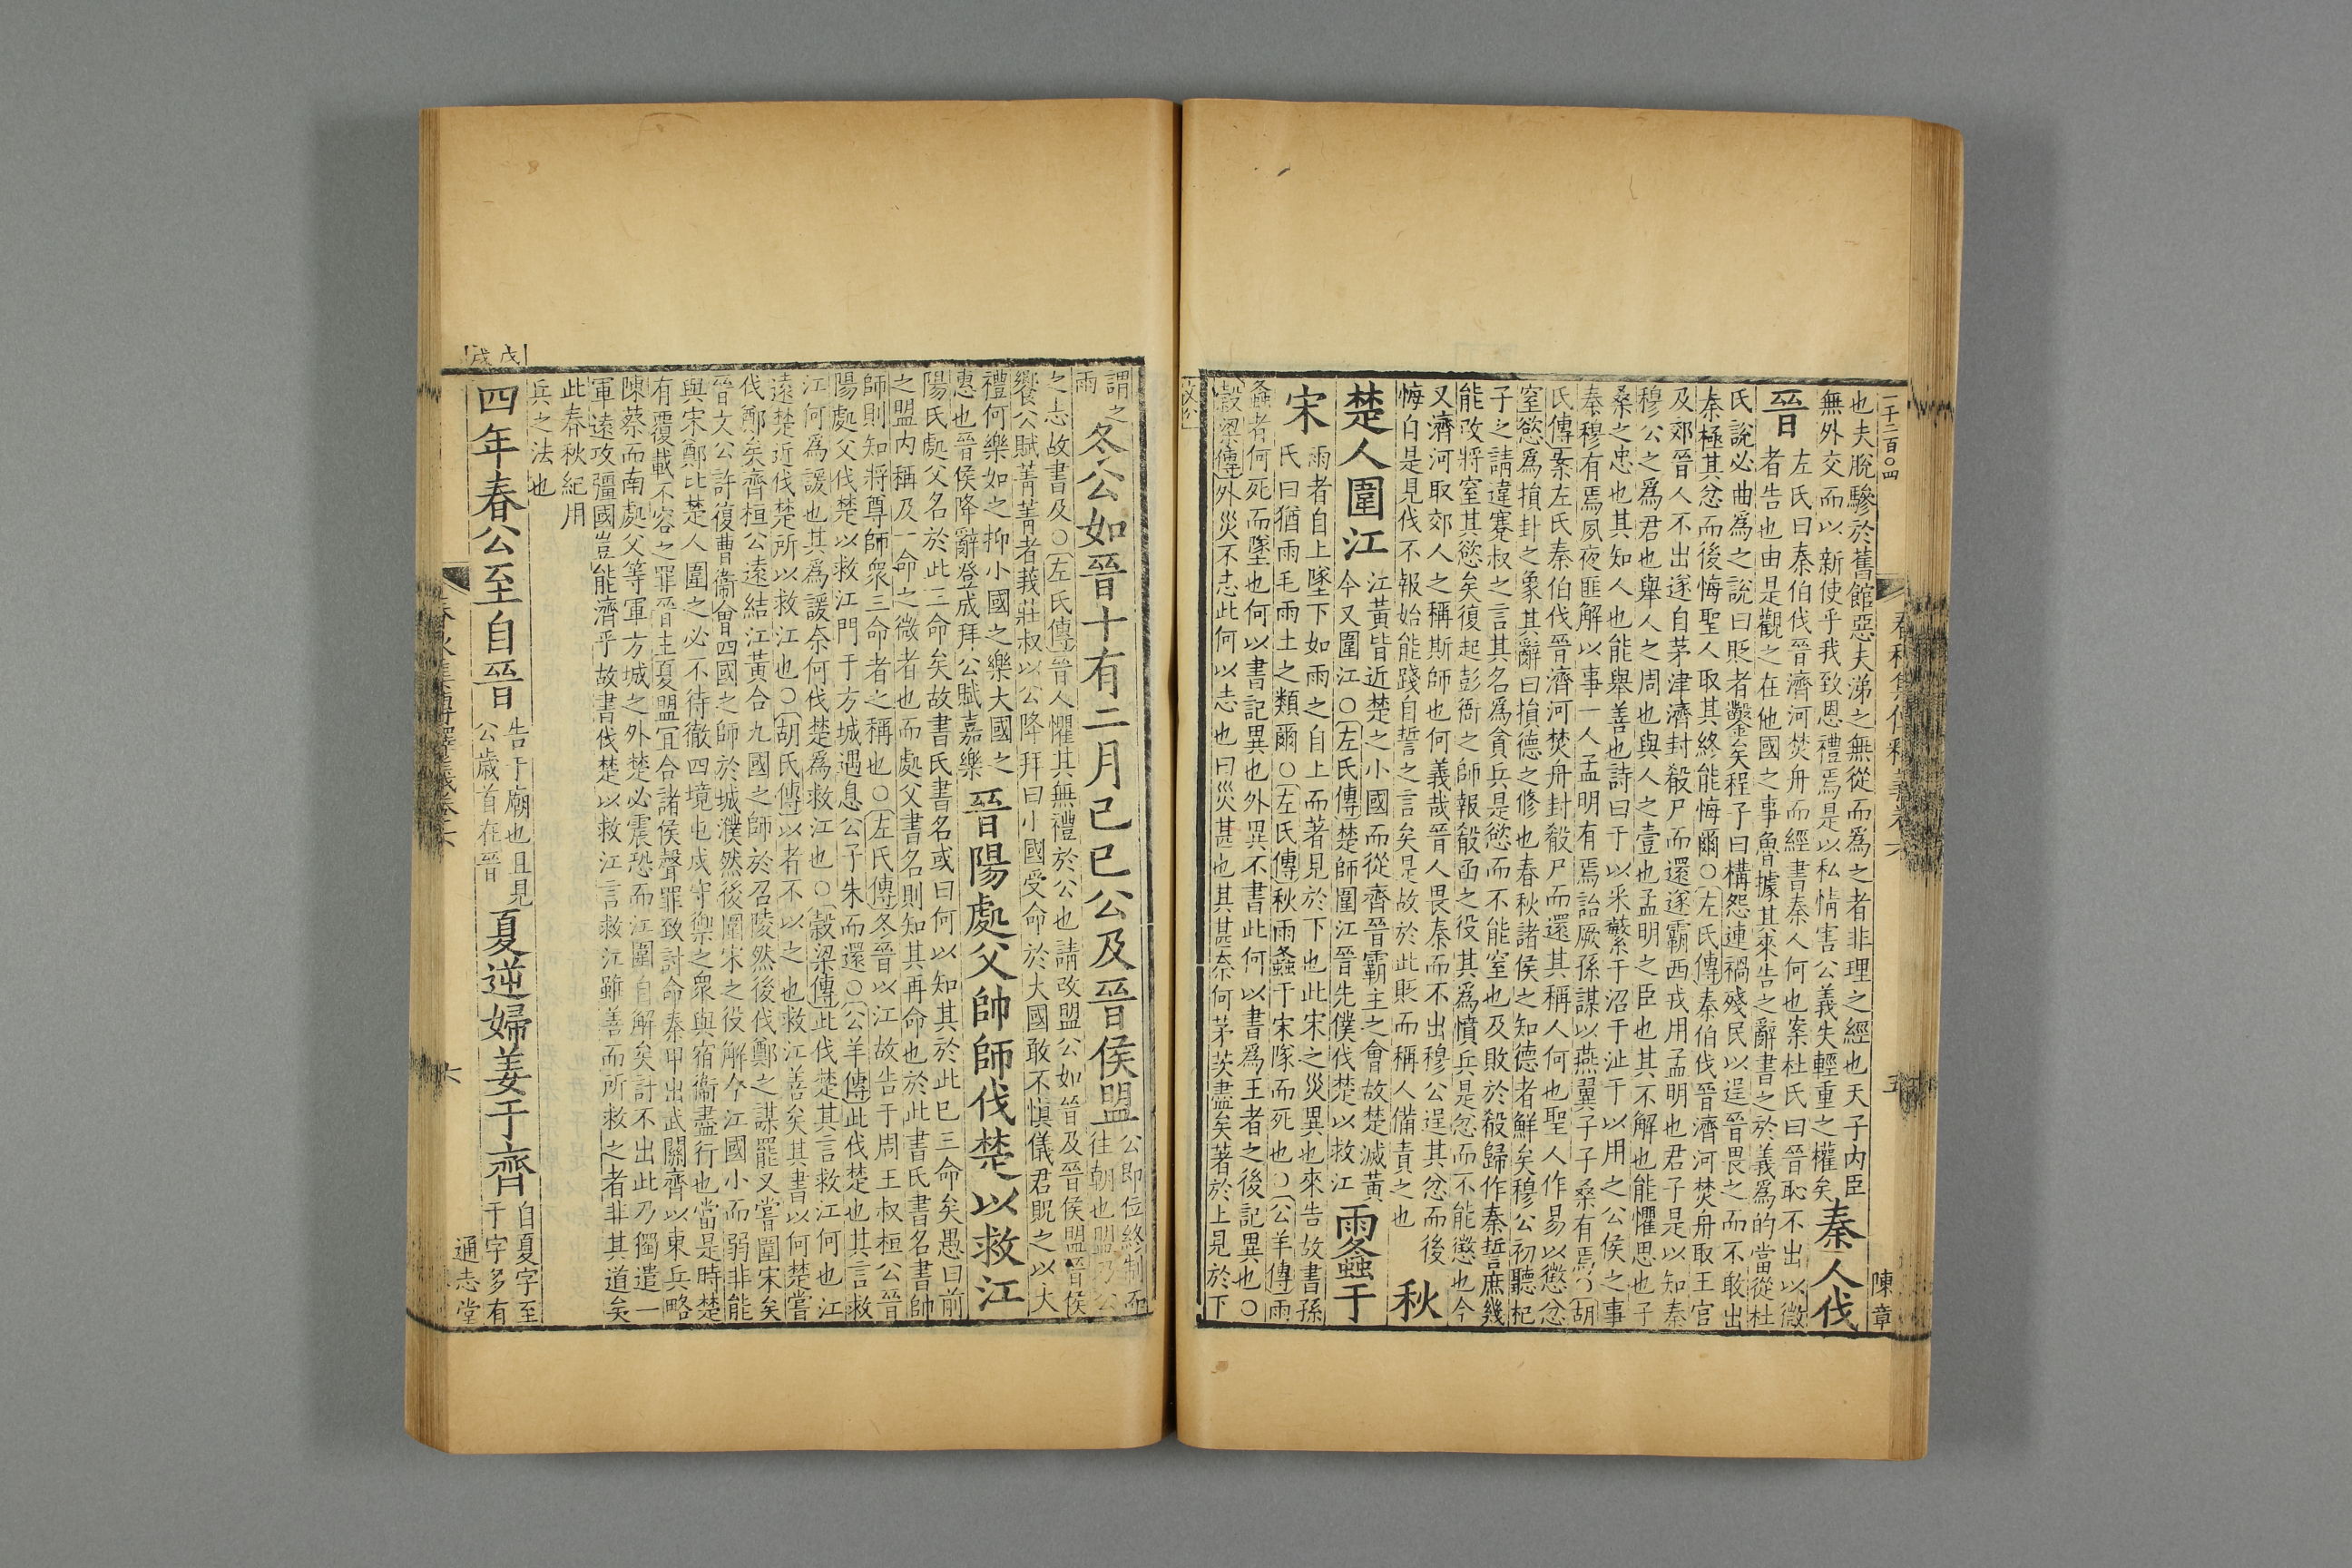 一千二百〇四
春秋集傳釋義卷六
五
陳章
也夫脫驂於舊館惡夫涕之無從而爲之者非理之經也天子內臣
無外交而以新使乎我致恩禮焉是以私情害公義失輕重之權矣
秦人伐
晉
左氏曰秦伯伐晉濟河焚舟而經書秦人何也案杜氏曰晉恥不出以微
者告也由是觀之在他國之事魯據其來告之辭書之於義爲的當從杜
氏說必曲爲之說曰貶者鑿矣程子曰構怨連禍殘民以逞晉畏之而不敢出
秦極其忿而後悔聖人取其終能悔爾○左氏傳秦伯伐晉濟河焚舟取王官
及郊晉人不出遂自茅津濟封殽尸而還遂霸西戎用孟明也君子是以知秦
穆公之爲君也舉人之周也與人之壹也孟明之臣也其不解也能懼思也子
桑之忠也其知人也能舉善也詩曰于以采蘩于沼于沚于以用之公侯之事
秦穆有焉夙夜匪解以事一人孟明有焉詒厥孫謀以燕翼子子桑有焉○胡
氏傳案左氏秦伯伐晉濟河焚舟封殽尸而還其稱人何也聖人作易以懲忿
窒慾爲損卦之象其辭曰損德之修也春秋諸侯之知德者鮮矣穆公初聽杞
子之請違蹇叔之言其名爲貪兵是慾而不能窒也及敗於殽歸作秦誓庶幾
能改將窒其慾矣復起彭衙之師報殽函之役其爲憤兵是忿而不能懲也今
又濟河取郊人之稱斯師也何義哉晉人畏秦而不出穆公逞其忿而後
悔自是見伐不報始能踐自誓之言矣是故於此貶而稱人備責之也
秋
楚人圍江
江黃皆近楚之小國而從齊晉霸主之會故楚滅黃
今又圍江○左氏傳楚師圍江晉先僕伐楚以救江
雨螽于
宋
雨者自上墜下如雨之自上而著見於下也此宋之災異也來告故書孫
氏曰猶雨毛雨土之類爾○左氏傳秋雨螽于宋隊而死也○公羊傳雨
螽者何死而墜也何以書記異也外異不書此何以書爲王者之後記異也○
穀梁傳外災不志此何以志也曰災甚也其甚奈何茅茨盡矣著於上見於下
謂之
雨
冬公如晉十有二月己巳公及晉侯盟
公即位終制而
往朝也盟乃公
之志故書及○左氏傳晉人懼其無禮於公也請改盟公如晉及晉侯盟晉侯
饗公賦菁菁者莪莊叔以公降拜曰小國受命於大國敢不慎儀君貺之以大
禮何樂如之抑小國之樂大國之
惠也晉侯降辭登成拜公賦嘉樂
晉陽處父帥師伐楚以救江
陽氏處父名於此三命矣故書氏書名或曰何以知其於此已三命矣愚曰前
之盟內稱及一命之微者也而處父書名則知其再命也於此書氏書名書帥
師則知將尊師衆三命者之稱也○左氏傳冬晉以江故告于周王叔桓公晉
陽處父伐楚以救江門于方城遇息公子朱而還○公羊傳此伐楚也其言救
江何爲諼也其爲諼奈何伐楚爲救江也○穀梁傳此伐楚其言救江何也江
遠楚近伐楚所以救江也○胡氏傳以者不以之也救江善矣其書以何楚嘗
伐鄭矣齊桓公遠結江黃合九國之師於召陵然後伐鄭之謀罷又嘗圍宋矣
晉文公許復曹衞會四國之師於城濮然後圍宋之役解今江國小而弱非能
與宋鄭比楚人圍之必不待徹四境屯戍守禦之衆與宿衞盡行也當是時楚
有覆載不容之罪晉主夏盟宜合諸侯聲罪致討命秦甲出武關齊以東兵略
陳蔡而南處父等軍方城之外楚必震恐而江圍自解矣計不出此乃獨遣一
軍遠攻彊國豈能濟乎故書伐楚以救江言救江雖善而所救之者非其道矣
此春秋紀用
兵之法也
戊戌
四年春公至自晉
告于廟也且見
公歲首在晉
夏逆婦姜于齊
自夏字至
于字多有
六
通志堂